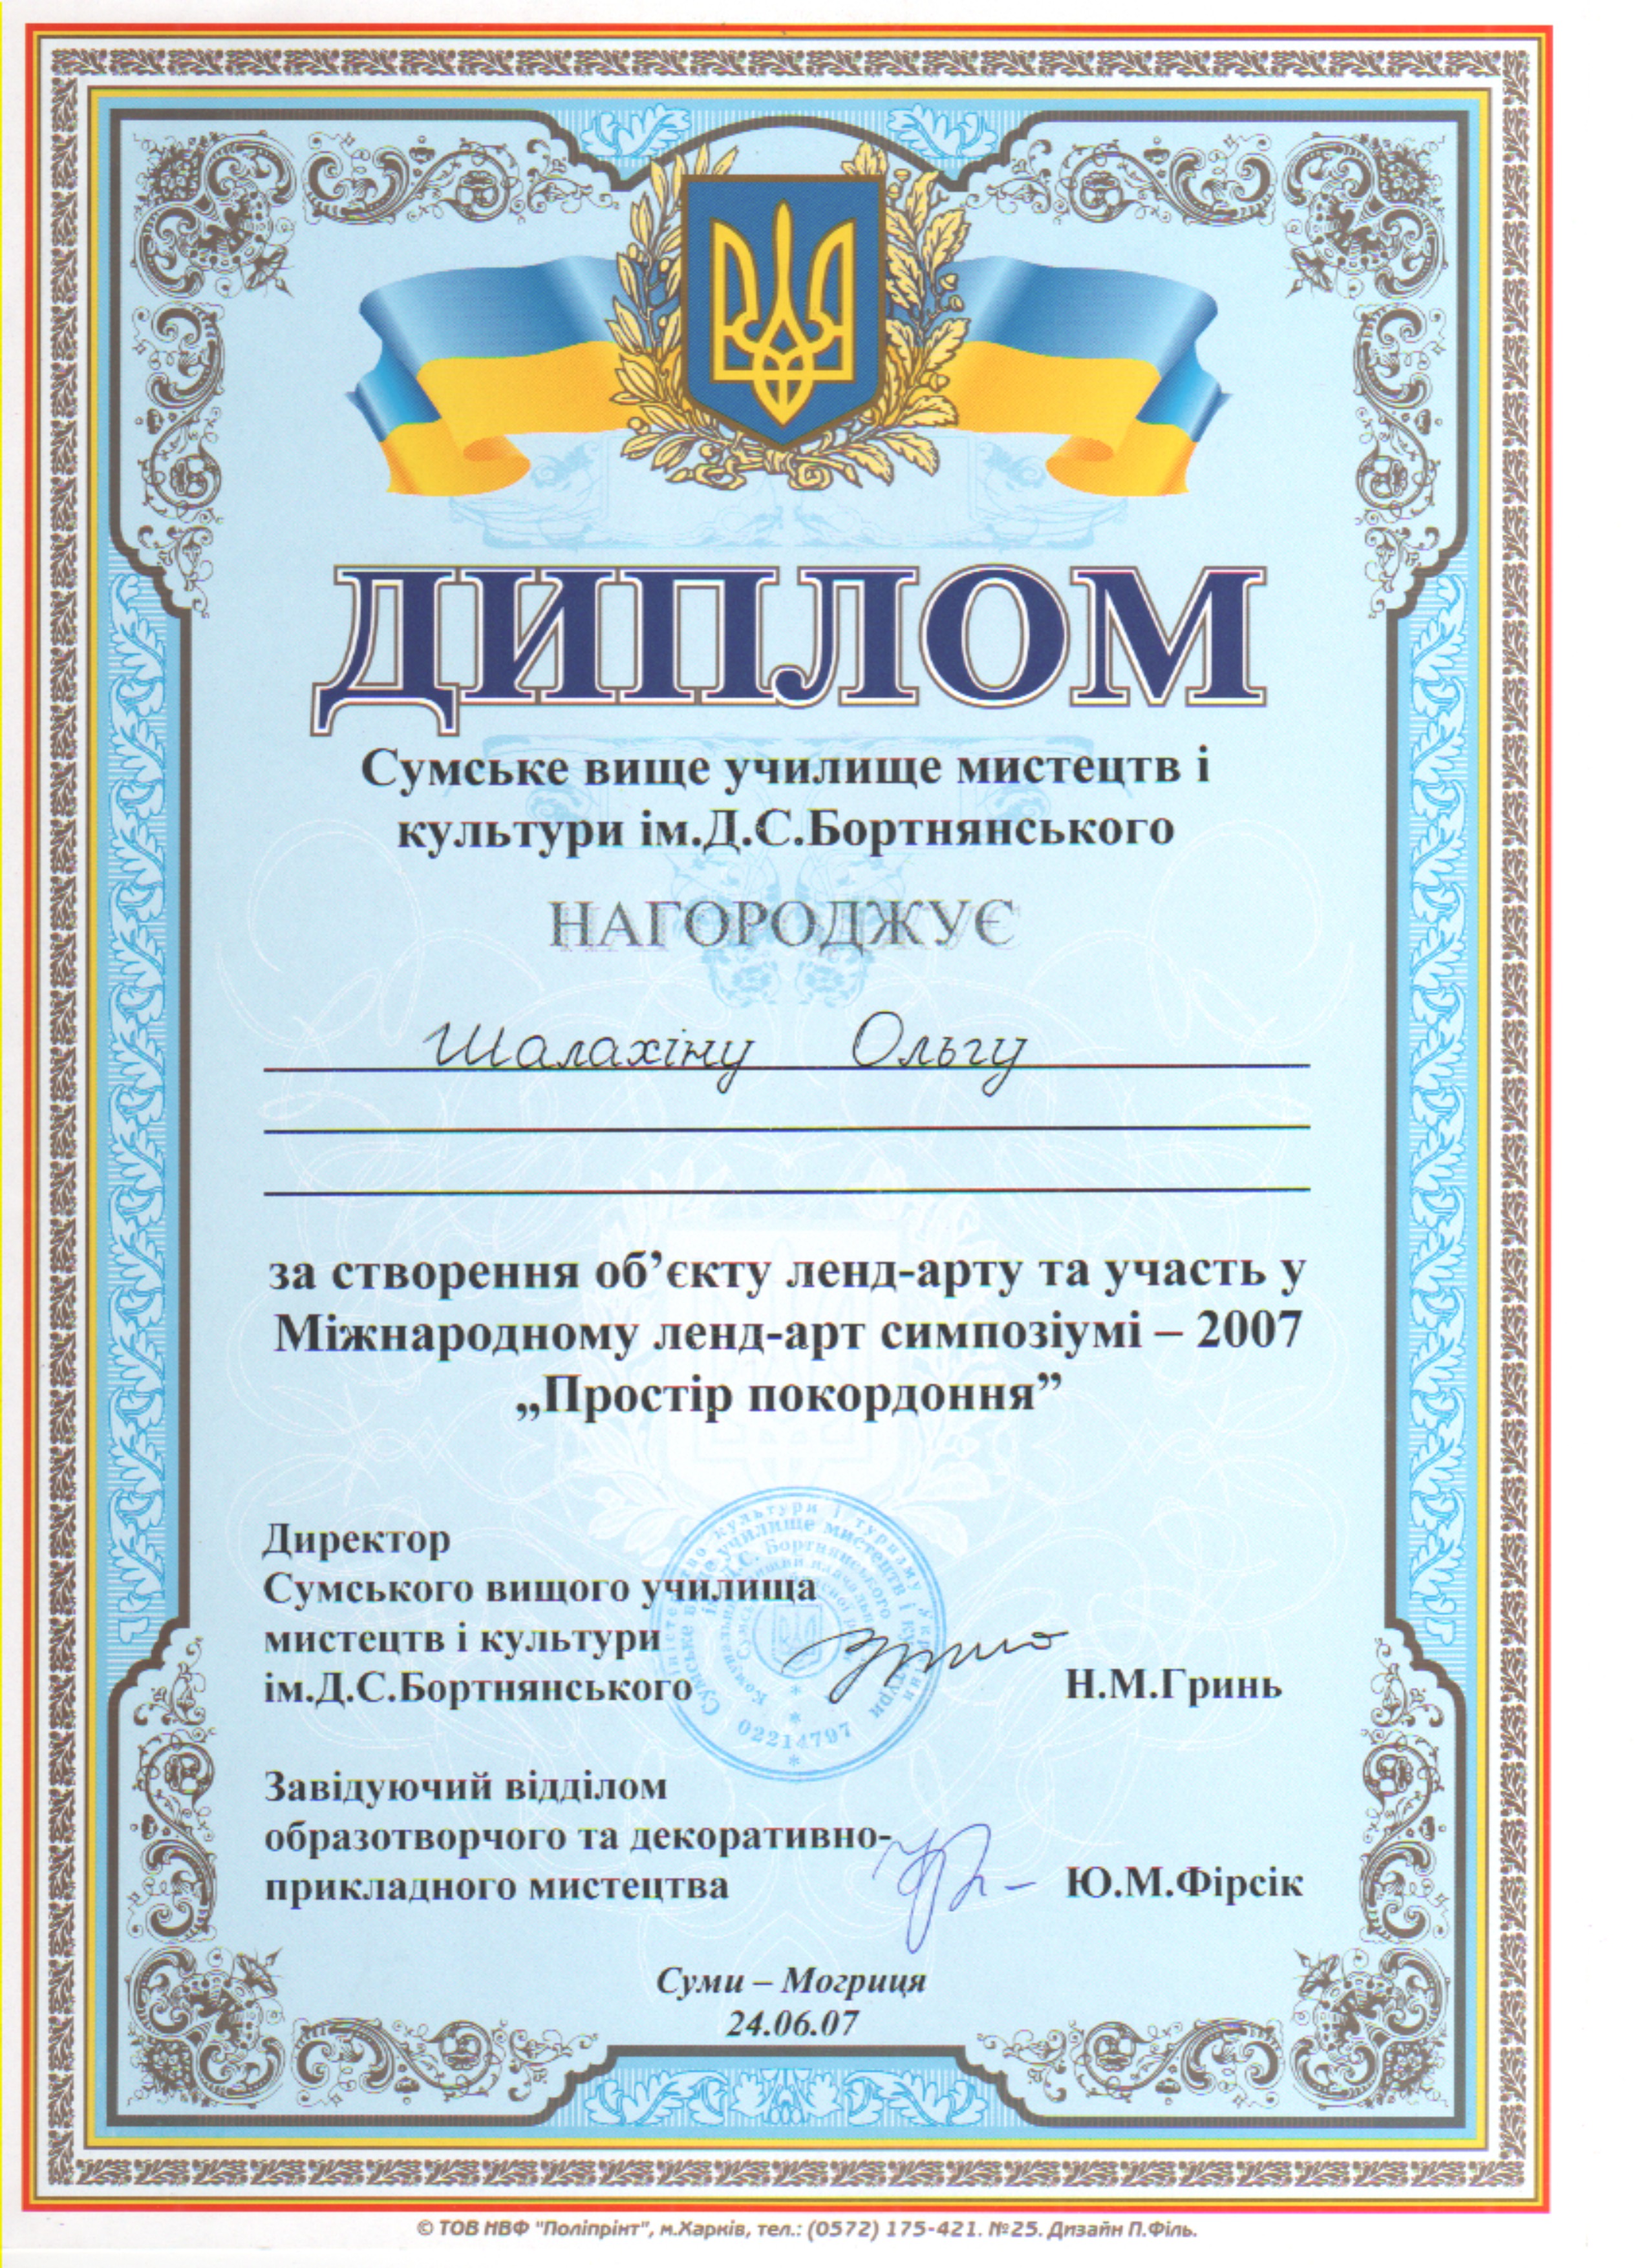 ДИПЛОМ
Сумське вище училище мистецтв і
культури ім.Д.С.Бортнянського
НАГОРОДЖУЄ
Шалахіну Ольгу
за створення об’єкту ленд-арту та участь у
Міжнародному ленд-арт симпозіумі – 2007
„Простір покордоння”
Директор
Сумського вищого училища
мистецтв і культури
ім.Д.С.Бортнянського
Н.М.Гринь
02214797
Завідуючий відділом
образотворчого та декоративно-
прикладного мистецтва
Ю.М.Фірсік
Суми – Могриця
24.06.07
© ТОВ НВФ "Поліпрінт", м.Харків, тел.: (0572) 175-421. №25. Дизайн П.Філь.